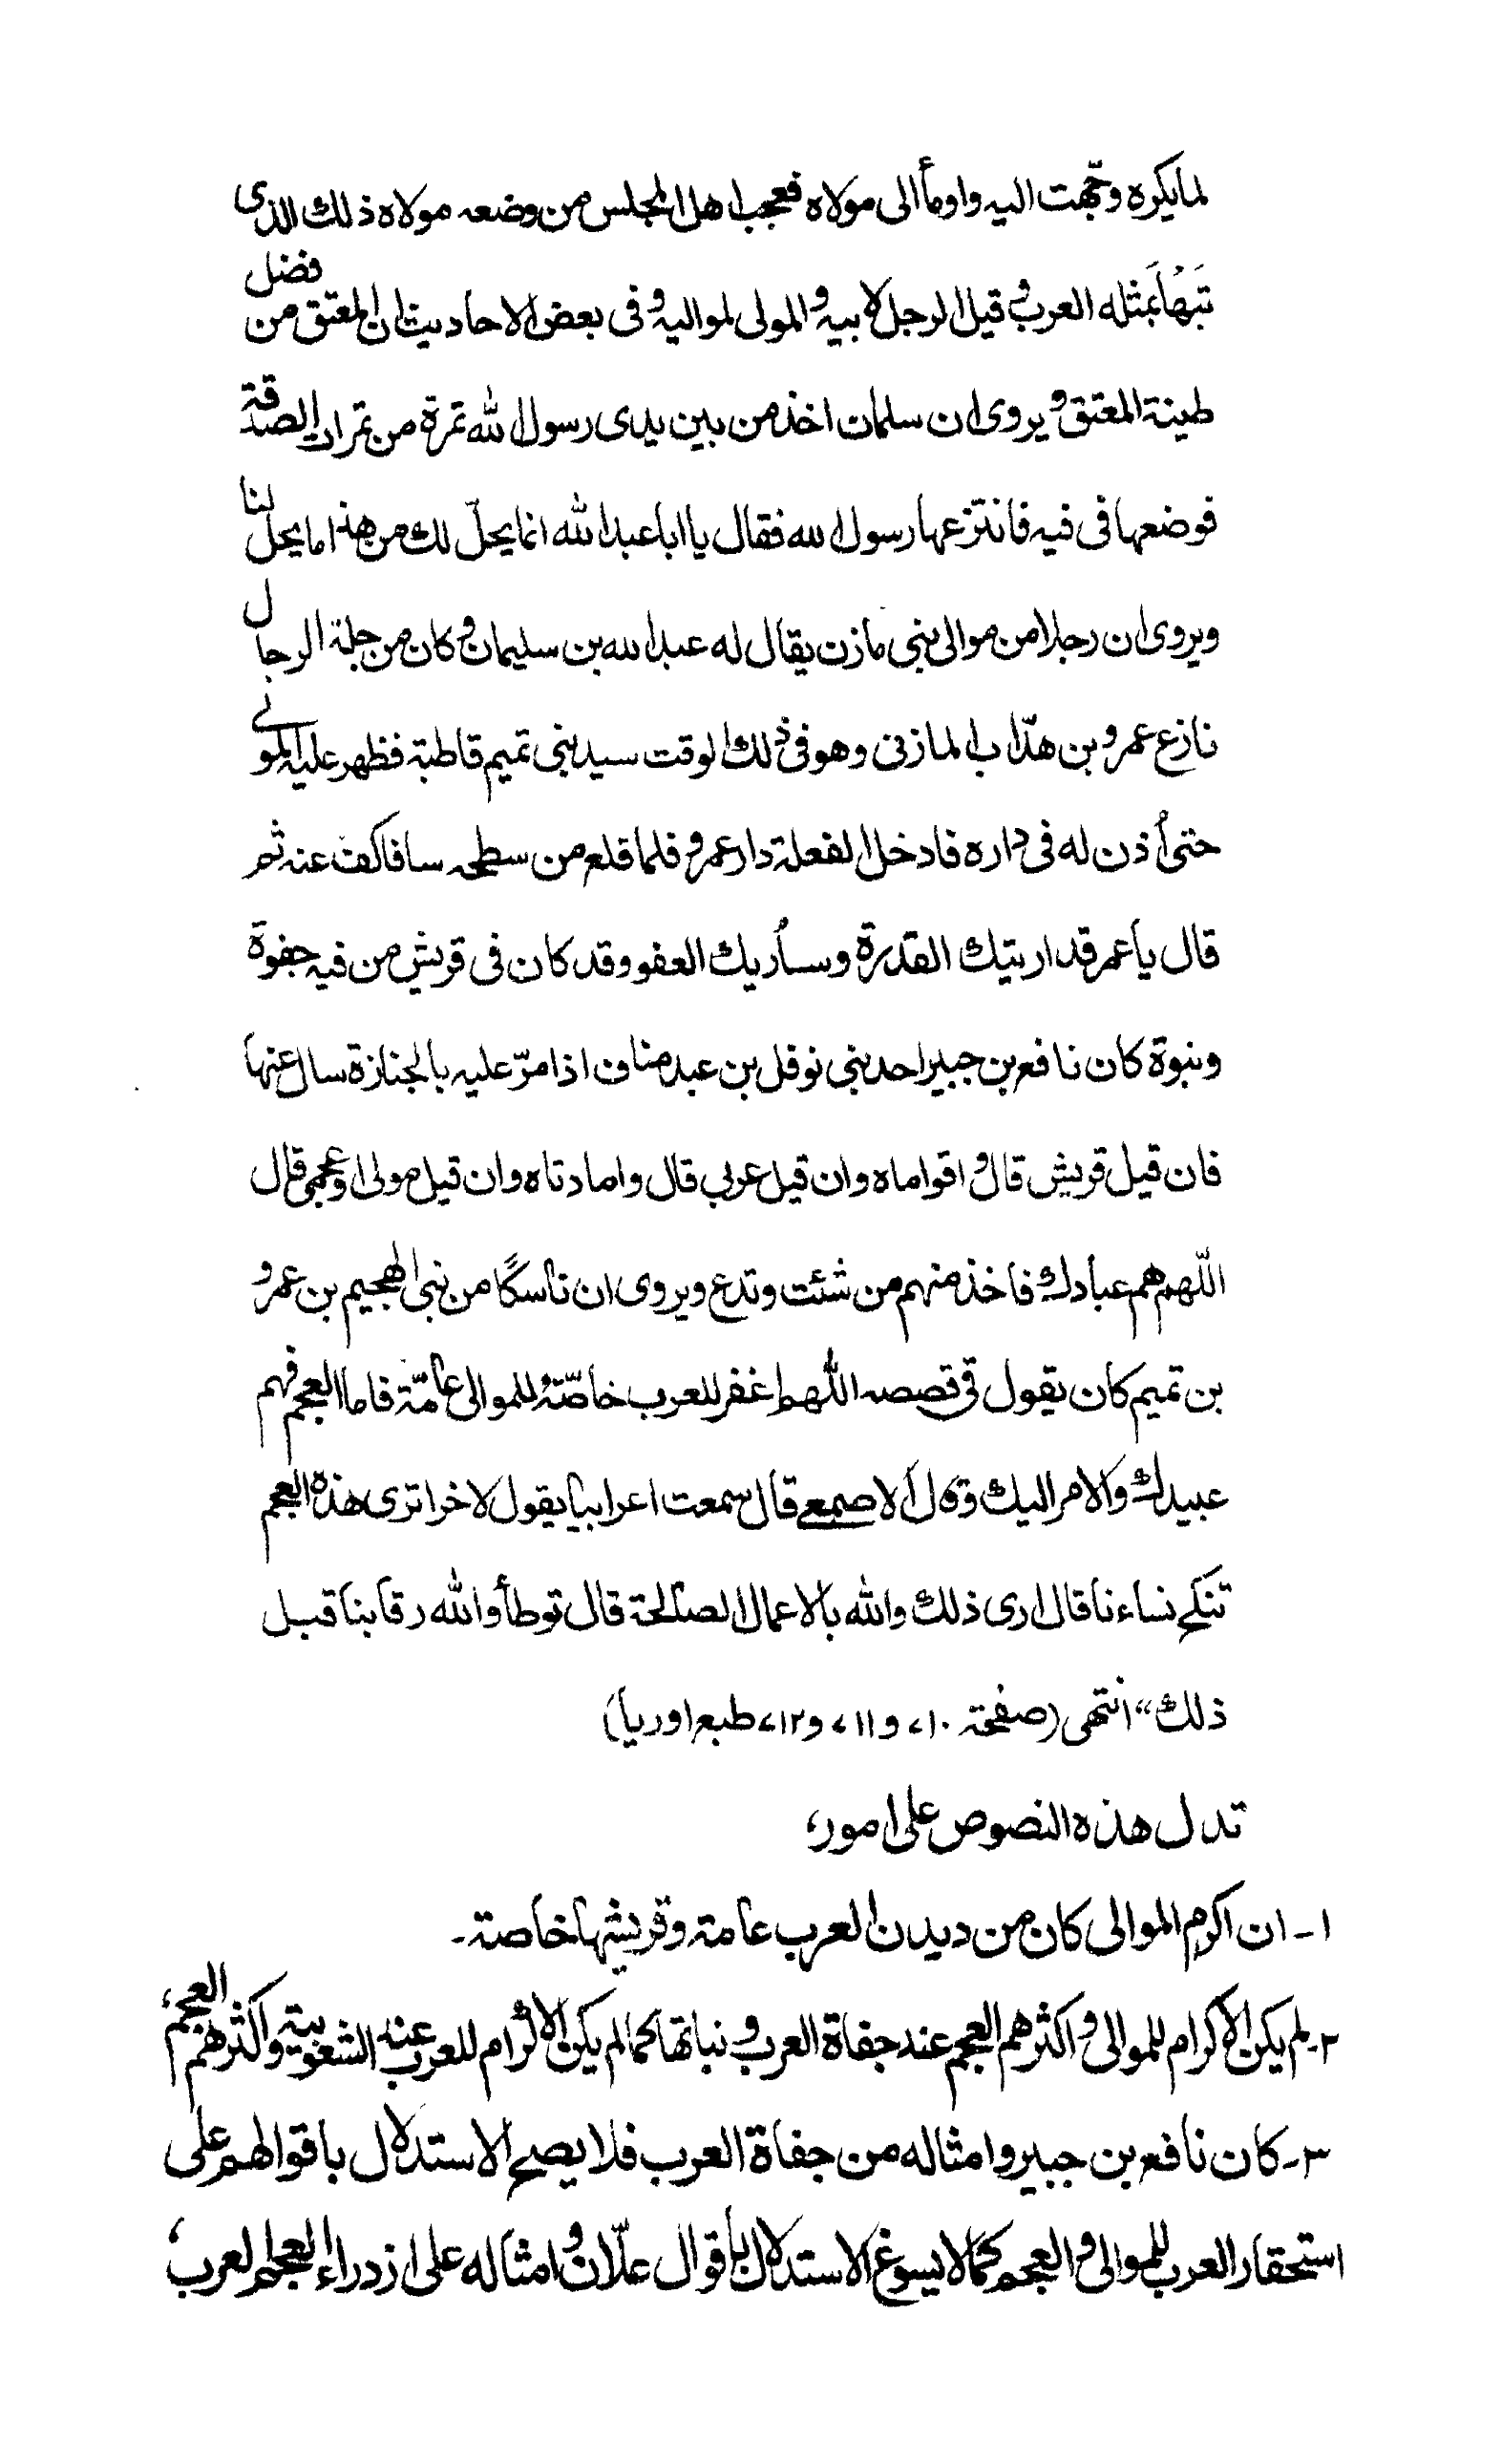 لما يكره وجّهت اليه واومأ الى مولاه فعجب اهل المجلس من وضعه مولاه ذلك الذى
تَبَهُاَ بمثله العرب وقيل الرجل لابيه والمولى لمواليه وفى بعض الاحاديث ان المعتق من فضل
طينة المعتق ويروى ان سلمان اخذ من بين يدى رسول الله تمرة من تمرات الصدقة
فوضعها فى فيه فانتزعها رسول الله فقال يا ابا عبد الله انما يحلّ لك من هذا ما يحل لنا
ويروى ان رجلا من موالى بنى مازن يقال له عبد الله بن سليمان وكان من جلة الرجال
نازع عمرو بن هدّاب المازنى وهو فى ذلك الوقت سيد بنى تميم قاطبة فظهر عليه المولى
حتى أُذن له فى داره فادخل الفعلة دار عمرو فلما قلع من سطحه سافا كف عنه ثم
قال يا عمر قد اريتك القدرة وسأُريك العفو وقد كان فى قريش من فيه جفوة
ونبوة كان نافع بن جبير احد بنى نوفل بن عبد مناف اذا مرّ عليه بالجنازة سال عنها
فان قيل قريش قال واقوماه وان قيل عربى قال وامادتاه وان قيل مولى او عجمى قال
اللّهم هم عبادك فاخذ منهم من شئت وتدع ويروى ان ناسكًا من بنى الهجيم بن عمرو
بن تميم كان يقول فى قصصه اللّهم اغفر للعرب خاصّة وللموالى عامّة فاما العجم فهم
عبيدك والامر اليك وقال الاصمعى قال سمعت اعرابيا يقول لاخر اترى هذه العجم
تنكح نساءنا قال ارى ذلك والله بالاعمال الصالحة قال توطأ والله رقابنا قبل
ذلك“ انتهى (صفحة ٧١٠ و٧١١ و٧١٢ طبع اوربا)
تدل هذه النصوص على امور،
١ - ان اكرم الموالى كان من ديدن العرب عامة وقريشها خاصة۔
٢ - لم يكن الاكرام للموالى واكثرهم العجم عند جفاة العرب ونباتها كما لم يكن الاكرام للعرب عند الشعوبية واكثرهم العجم،
٣ - كان نافع بن جبير وامثاله من جفاة العرب فلا يصح الاستدلال باقوالهم على
استحقار العرب للموالى والعجم كما لا يسوغ الاستدلال بأقوال علّان وامثاله على ازدراء العجم العرب،